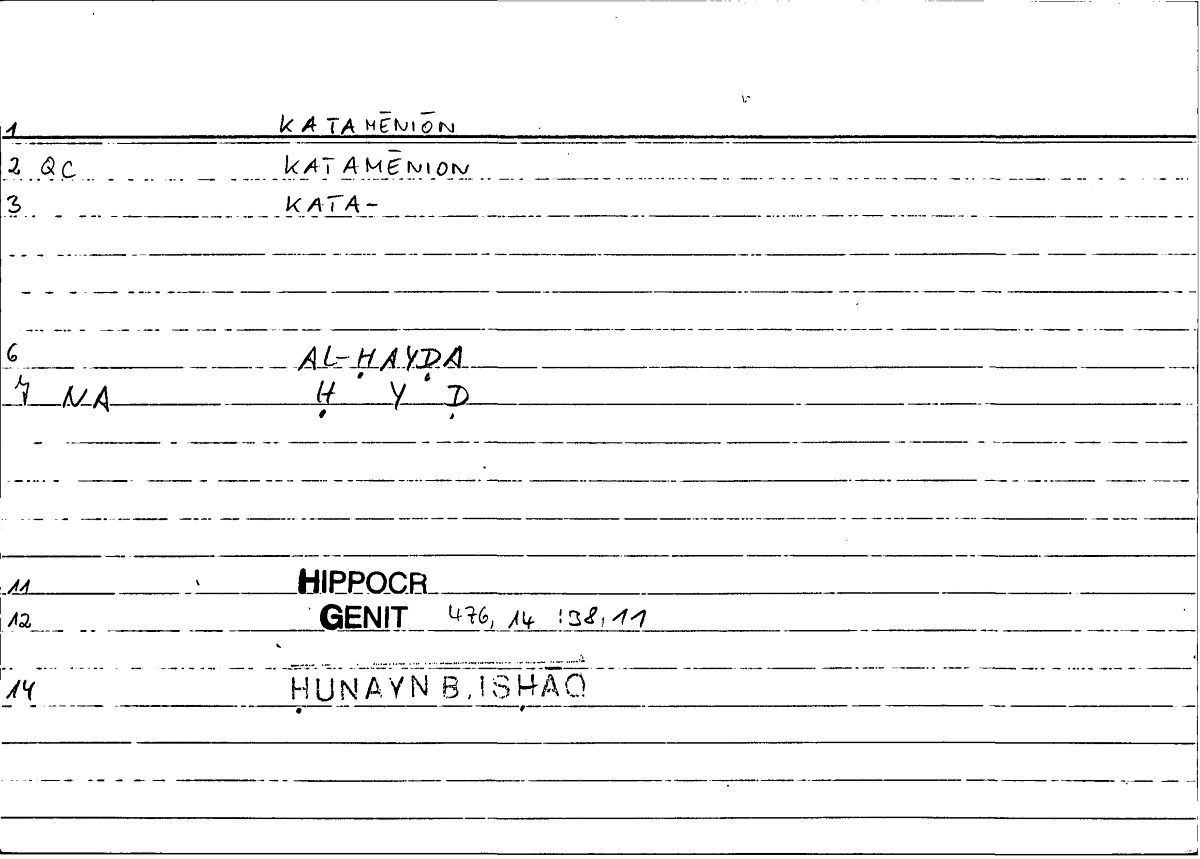 1 KATAMĒNIŌN
2 QC KATAMĒNION
3 KATA-
6 AL-ḤAYḌA
7 NA Ḥ Y Ḍ
11 HIPPOCR
12 GENIT 476, 14 :38,11
14 ḤUNAYN B. ISḤĀQ